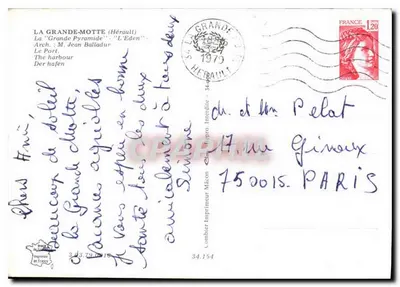 LA GRANDE-MOTTE (Hérault)
La "Grande Pyramide" "L'Eden"
Arch. : M. Jean Balladur
Le Port.
The harbour
Der hafen
34 LA GRANDE
1979
HERAULT
FRANCE
1,20
Chers Amis,
Beaucoup de soleil
à la Grande Motte,
Journées agréables
Je vous espère en bonne
santé tous les deux
amicalement à tous deux
Simone
M. et Mme Pelat
17 rue Ginoux
75015. PARIS
34.154